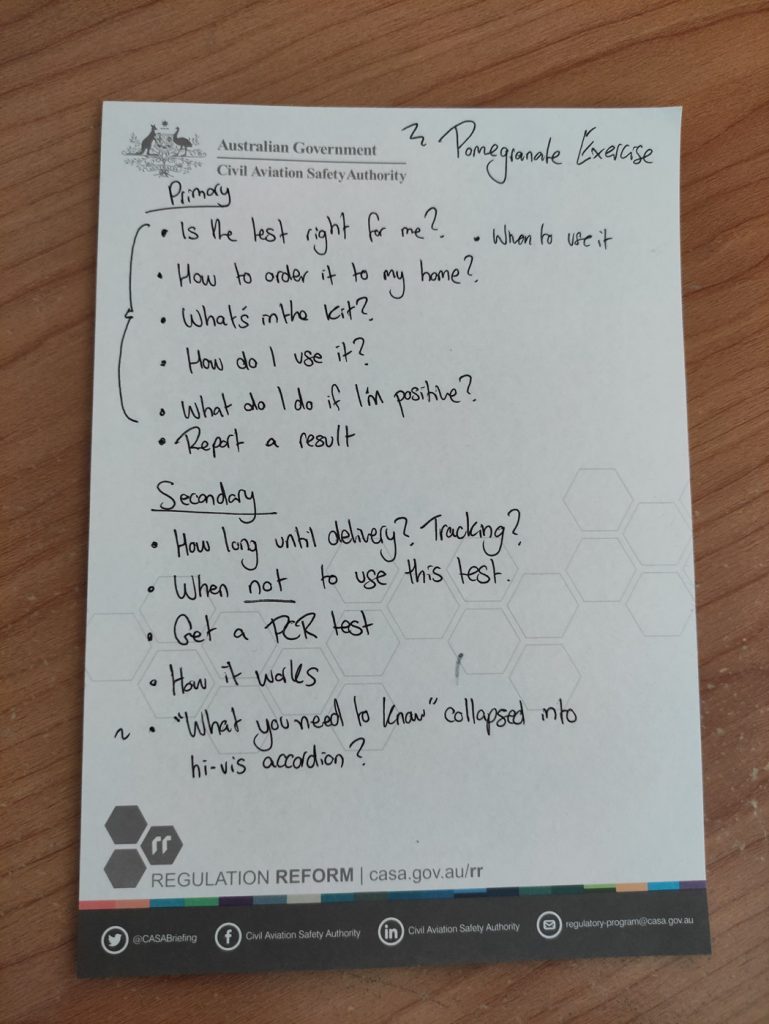 Australian Government
Civil Aviation Safety Authority
Pomegranate Exercise
Primary
• Is the test right for me? • When to use it
• How to order it to my home?
• What's in the kit?
• How do I use it?
• What do I do if I'm positive?
• Report a result
Secondary
• How long until delivery? Tracking?
• When not to use this test.
• Get a PCR test
• How it works
~ • "What you need to know" collapsed into
hi-vis accordion?
rr
REGULATION REFORM | casa.gov.au/rr
@CASABriefing
Civil Aviation Safety Authority
in Civil Aviation Safety Authority
regulatory-program@casa.gov.au